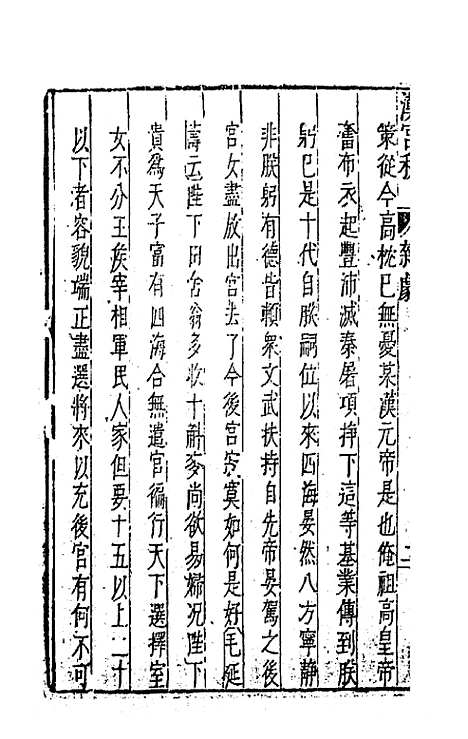 漢宮秋 雜劇 二
策從今高枕已無憂某漢元帝是也俺祖高皇帝
奮布衣起豐沛滅秦屠項掙下這等基業傳到朕
躬已是十代自朕嗣位以來四海晏然八方寧靜
非朕躬有德皆賴眾文武扶持自先帝晏駕之後
宮女盡放出宮去了今後宮寂寞如何是好毛延
壽云陛下田舍翁多收十斛麥尚欲易婦况陛下
貴爲天子富有四海合無遣官徧行天下選擇室
女不分王侯宰相軍民人家但要十五以上二十
以下者容貌端正盡選將來以充後宮有何不可